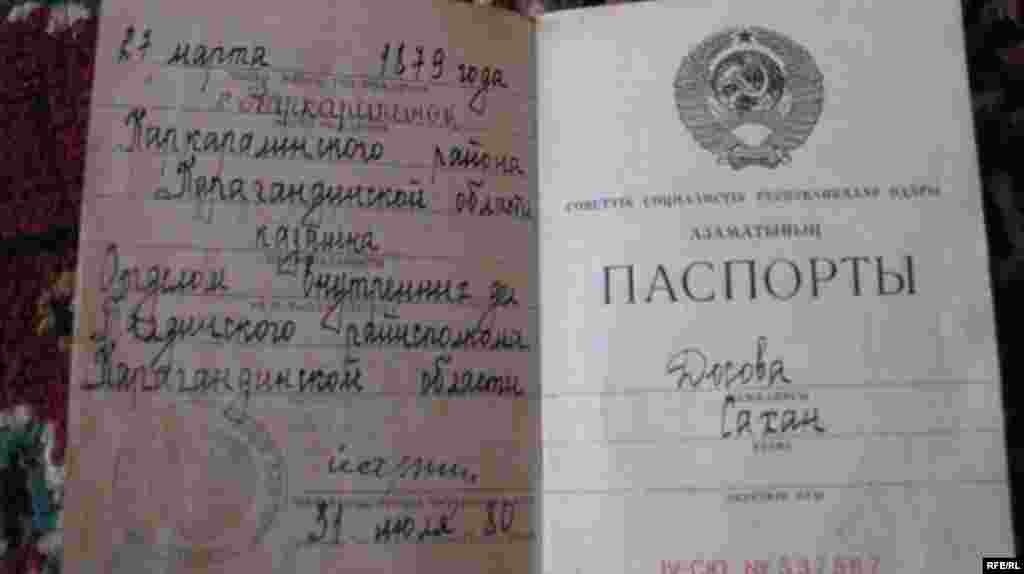 27 марта 1879 года
с.
Каркаралинского района
Карагандинской области
казашка
Отделом внутренних дел
райисполкома
Карагандинской области
31 июля 80
СОВЕТТІК СОЦИАЛИСТІК РЕСПУБЛИКАЛАР ОДАҒЫ
АЗАМАТЫНЫҢ
ПАСПОРТЫ
Досова
ФАМИЛИЯСЫ
Сахан
RFE/RL